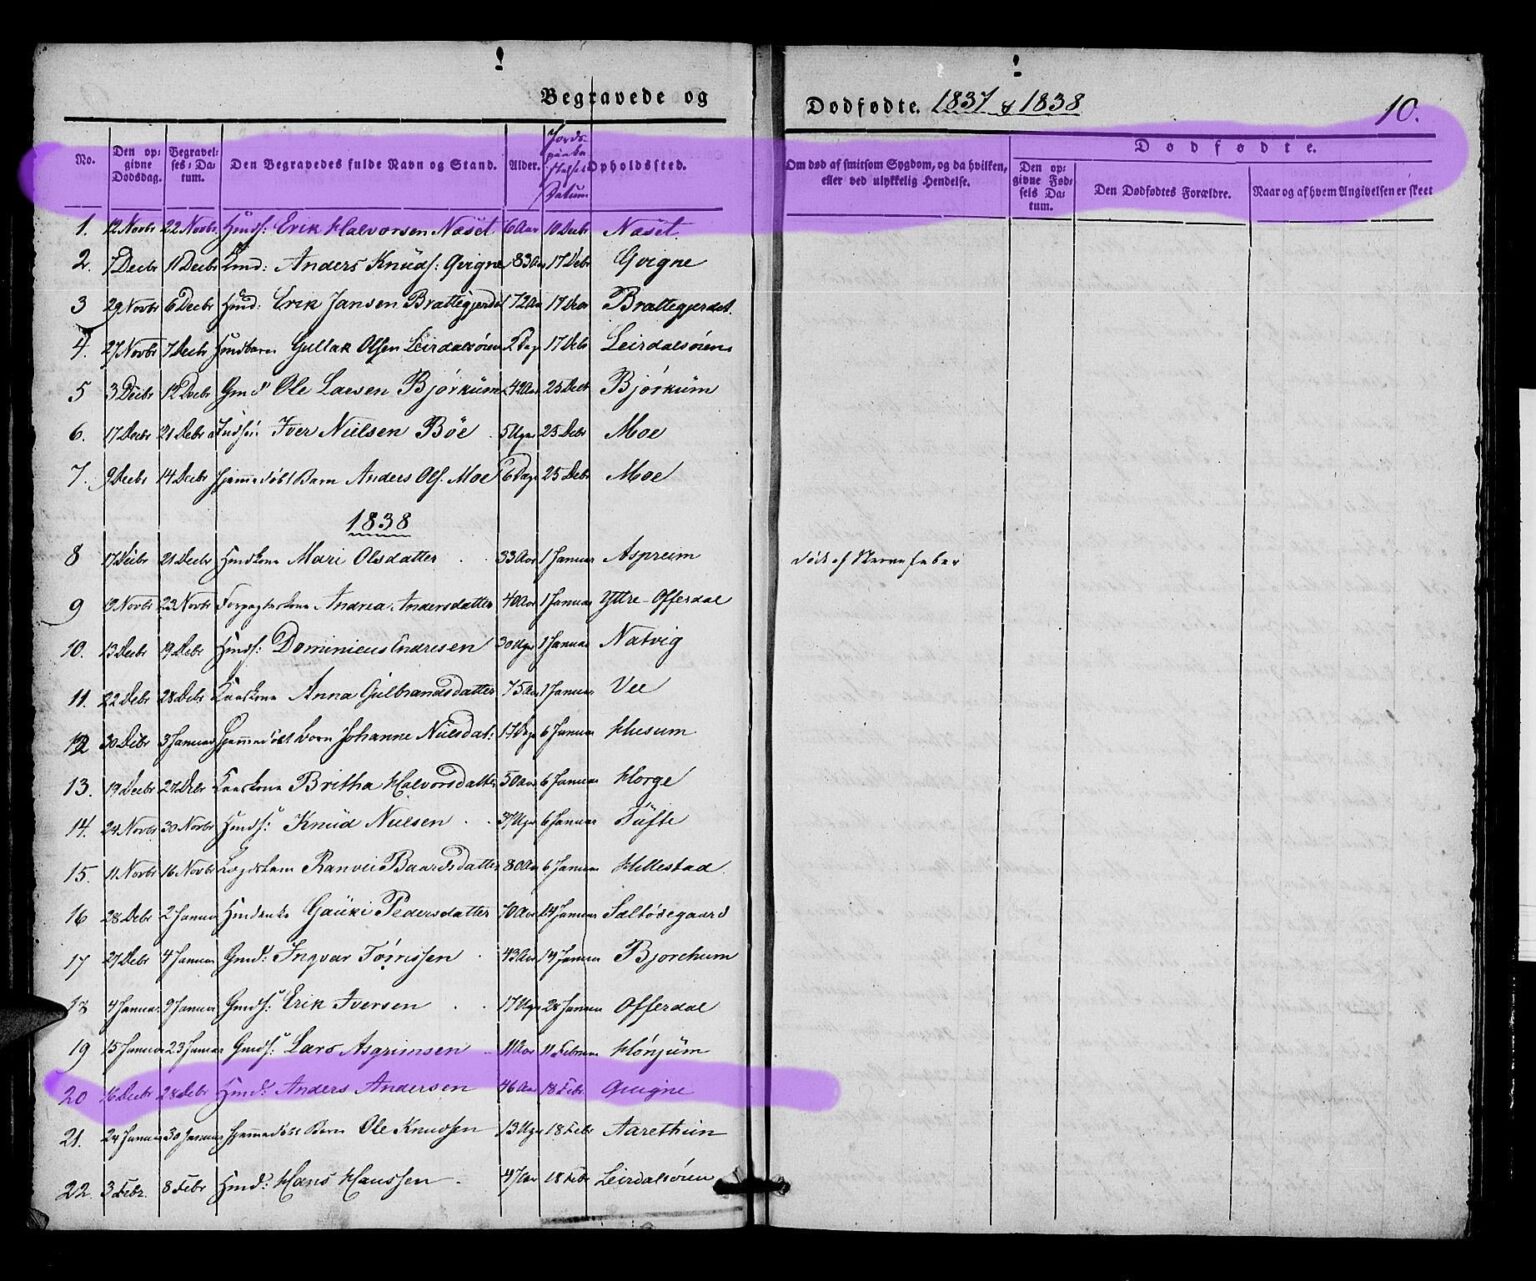 Begravede og
Dødfødte. 1837 & 1838
10.
No. Den opgivne Dødsdag. Begravelses-Datum. Den Begravedes fulde Navn og Stand. Alder. Jords-paakastelses Datum Opholdssted. Om død af smitsom Sygdom, og da hvilken, eller ved ulykkelig Hendelse. Dødfødte. Den opgivne Fødsels Datum. Den Dødfødtes Forældre. Naar og af hvem Angivelsen er skeet
1. 12 Novbr 22 Novbr Huusf: Erik Halvorsen Næset 6 Aar 10 Decbr Næset.
2. 7 Decbr 11 Decbr Anders Knuds: Qvigne 83 Aar 17 Debr Qvigne
3 29 Novbr 6 Decbr Huusd: Erik Jansen Brattegjerdet 72 Aar 17 Decbr Brattegjerdet.
4. 27 Novbr 7 Decbr Huusbarn Gullak Olsen Leirdalsøren 2 Dage 17 Debr Leirdalsøren
5 3 Decbr 12 Decbr Ole Larsen Bjørkum 42 Aar 25 Decbr Bjørkum
6. 17 Decbr 21 Debr Iver Nielsen Bøe 5 Uger 25 Debr Moe
7. 9 Decbr 14 Decbr Hjemmedøbt Barn Anders Ols. Moe 6 Dage 25 Debr Moe
1838
8 17 Debr 21 Decbr Huuskone Mari Olsdatter 33 Aar 1 Januar Aspreim død af Nervefeber
9 Novbr 23 Novbr Forpagterkone Andrea Andersdatter 40 Aar 1 Januar Yttre-Offerdal
10. 13 Decbr 19 Debr Huusf: Dominicus Endresen 30 Uger 1 Januar Natvig
11. 22 Debr 28 Debr Kaarkone Anna Gulbrandsdatter 75 Aar 1 Januar Vee
12 30 Debr 3 Januar Hjemmedøbt barn Johanne Nielsdat: 17 Dage 6 Januar Husum
13. 19 Decbr 27 Debr Kaarkone Britha Halvorsdatter 50 Aar 6 Januar Horge
14. 24 Novbr 30 Novbr Huusf: Knud Nielsen 37 Uger 6 Januar Tufte
15. 11 Novbr 16 Novbr Ranvei Baardsdatter 80 Aar 6 Januar Hillestad.
16 28 Debr 2 Januar Huusenke Gauki Pedersdatter 70 Aar 14 Januar Saltøsegaard
17 27 Debr 4 Januar Gmd: Ingvar Tørrissen 43 Aar 14 Januar Bjorchum
18 4 Januar 9 Januar Gmds: Erik Iversen 17 Uger 28 Januar Offerdal
19 15 Januar 23 Januar Gmds: Lars Asgrimsen 11 Aar 11 Februar Hønjum
20 16 Decbr 28 Debr Huusd: Anders Andersen 46 Aar 18 Febr Qvigne
21. 24 Januar 30 Januar Hjemmedøbt Barn Ole Knudsen 13 Uger 18 Febr Aarethun
22. 3 Febr. 8 Febr Huusd: Hans Hanssen 47 Aar 18 Febr Leirdalsøren